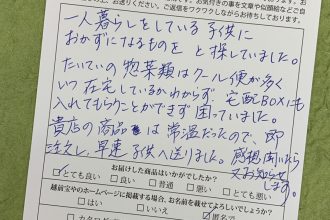 お送りください。お気付きの事を文章や似顔絵などご自
ご返信をワクワクしながらお待ちしております。
一人暮らしをしている子供に
おかずになるものを と探していました。
たいていの惣菜類はクール便が多く
いつ在宅しているかわからず、宅配BOXにも
入れてもらうことができず困っていました。
貴店の商品は常温だったので、即
注文し、早速子供へ送りました。感想聞いたら
又お知らせします。
お届けした商品はいかがでしたか?
☑とても良い □良い □普通 □悪い □とても悪い
越前宝やのホームページに掲載する場合、お名前を載せてよろしいでしょうか?
□はい □いいえ ☑匿名で